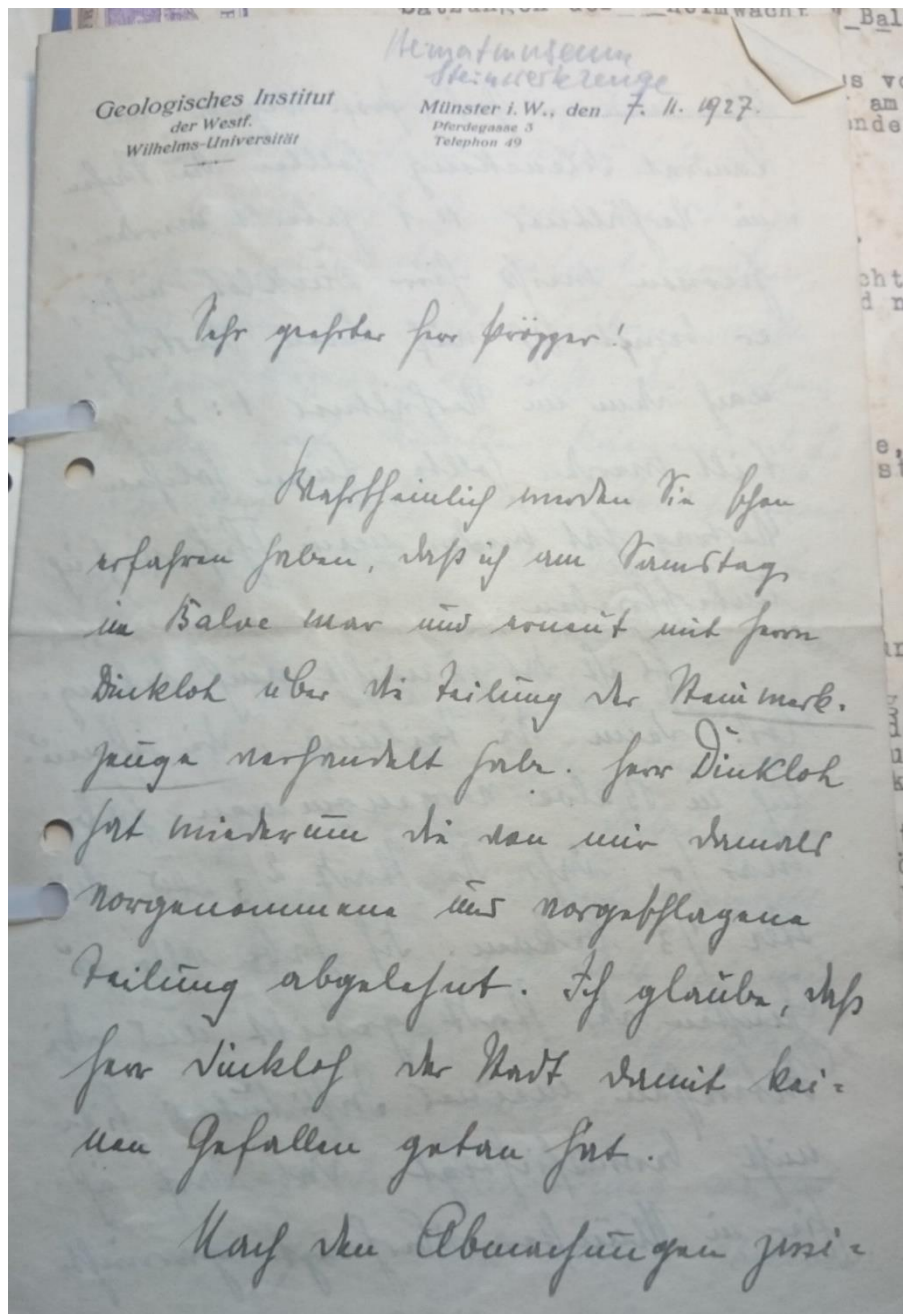 Satzungen der Heimwacht Bal
Heimatmuseum
Steinwerkzeuge
Geologisches Institut
der Westf.
Wilhelms-Universität
Münster i. W., den 7. 11. 1927.
Pferdegasse 3
Telephon 49
Sehr geehrter Herr Pröpper!
Wahrscheinlich werden Sie schon
erfahren haben, daß ich am Samstag
in Balve war und erneut mit Herrn
Dinkloh über die Teilung der Steinwerk-
zeuge verhandelt habe. Herr Dinkloh
hat wiederum die von mir damals
vorgenommene und vorgeschlagene
Teilung abgelehnt. Ich glaube, daß
Herr Dinkloh der Stadt damit kei-
nen Gefallen getan hat.
Nach den Abmachungen zwi-